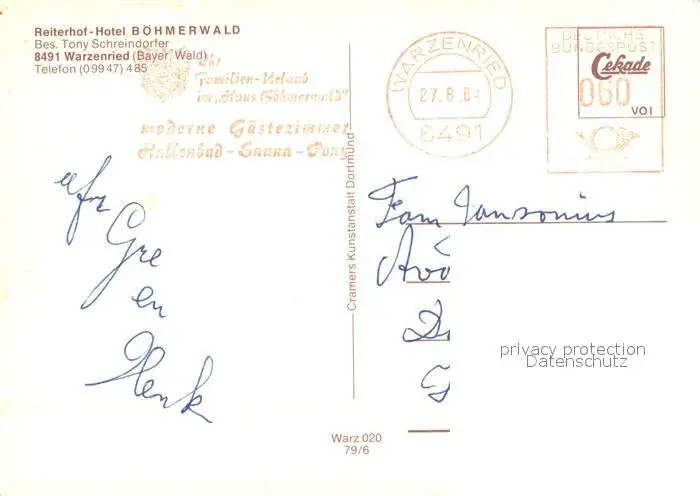 Reiterhof-Hotel BÖHMERWALD
Bes. Tony Schreindorfer
8491 Warzenried (Bayer. Wald)
Telefon (09947) 485
Ihr
Familien-Urlaub
im „Haus Böhmerwald"
moderne Gästezimmer
Hallenbad - Sauna - Pony
WARZENRIED
27.8.84
8491
DEUTSCHE
BUNDESPOST
Cekade
060
VOI
afz
Gre
en
Henk
Fam Jansonius
Cramers Kunstanstalt Dortmund
privacy protection
Datenschutz
Warz 020
79/6